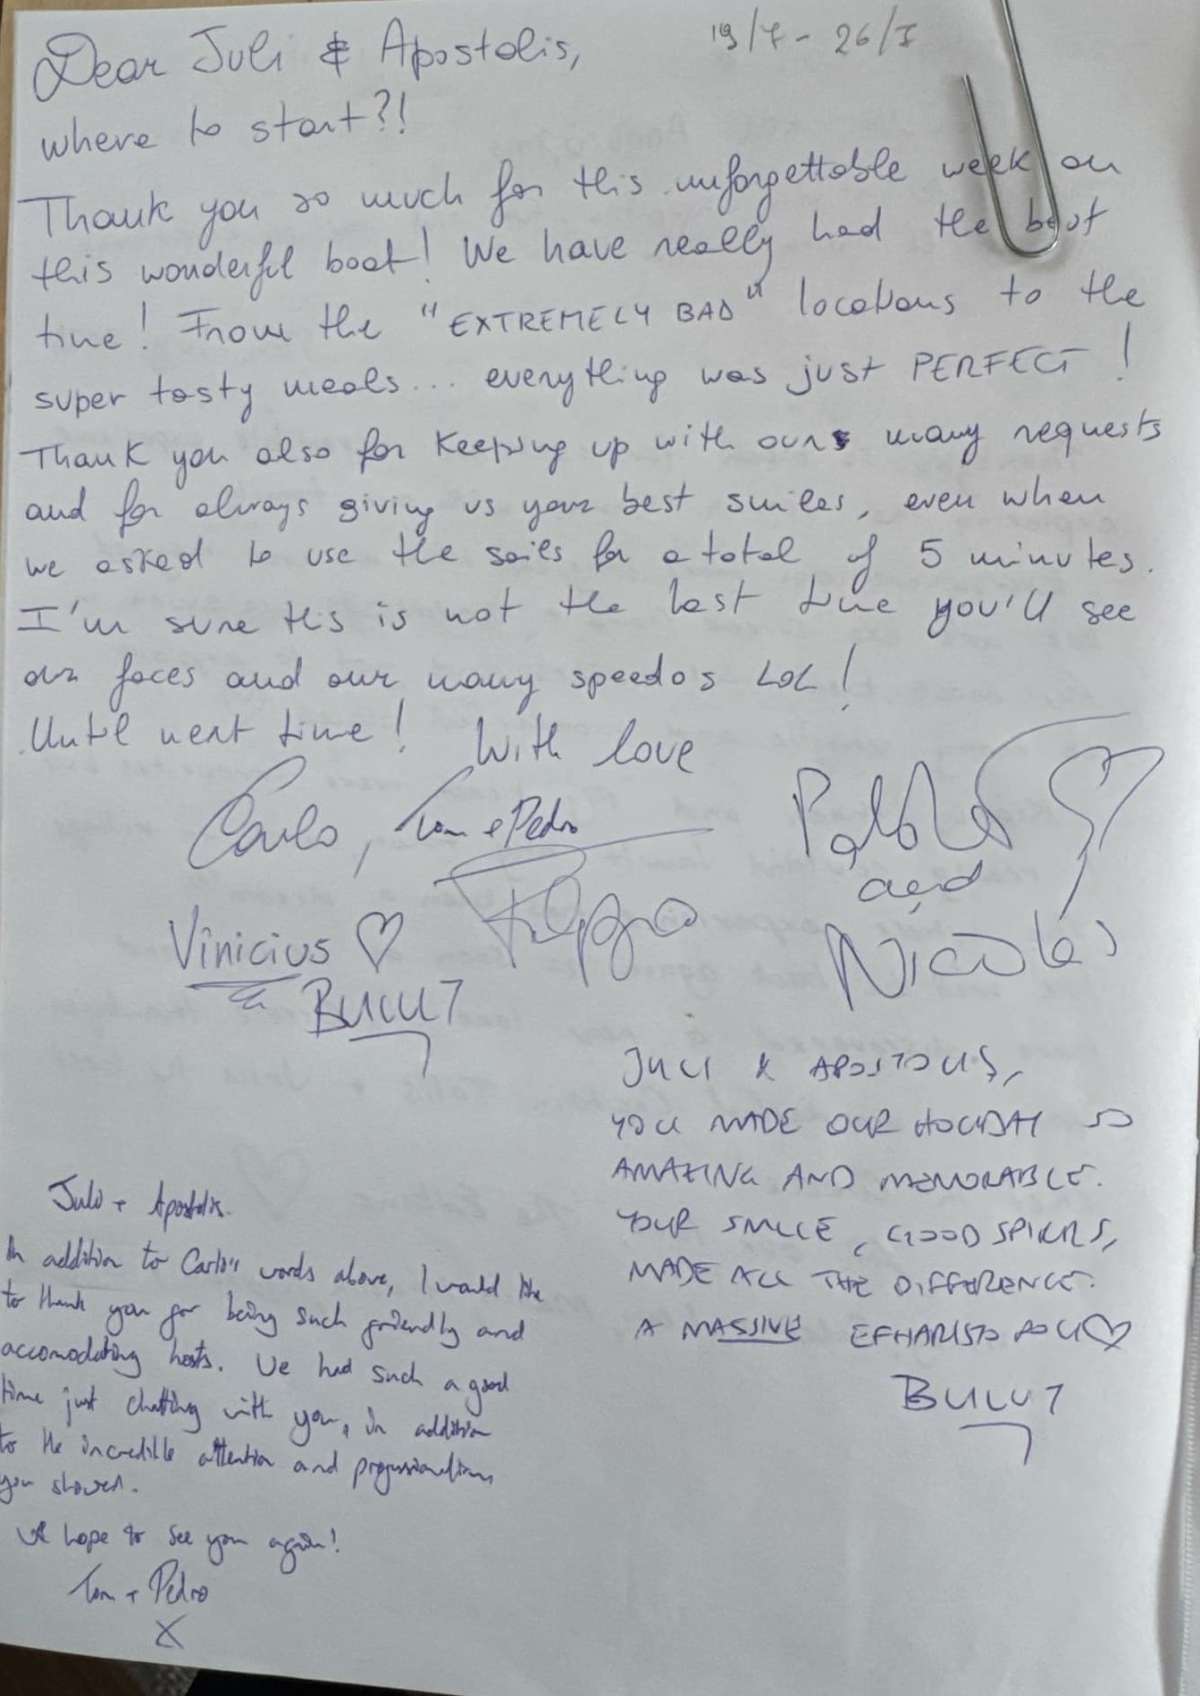 Dear Juli & Apostolis,
19/7 - 26/7
where to start?!
Thank you so much for this unforgettable week on
this wonderful boat! We have really had the best
time! From the "EXTREMELY BAD" locations to the
super tasty meals... everything was just PERFECT!
Thank you also for keeping up with ours many requests
and for always giving us your best smiles, even when
we asked to use the sails for a total of 5 minutes.
I'm sure this is not the last time you'll see
our faces and our many speedos LOL!
Until next time! With love
Carlo, Tom & Pedro
Pablo
and
Nicolas
Filippo
Vinicius ♡
BULUT
JULI & APOSTOLIS,
YOU MADE OUR HOLIDAY SO
AMAZING AND MEMORABLE.
YOUR SMILE, GOOD SPIRITS,
MADE ALL THE DIFFERENCE.
A MASSIVE EFHARISTO POLI ♡
BULUT
Juli + Apostolis.
In addition to Carlo's words above, I would like
to thank you for being such friendly and
accomodating hosts. We had such a good
time just chatting with you, in addition
to the incredible attention and professionalism
you showed.
We hope to see you again!
Tom + Pedro
X